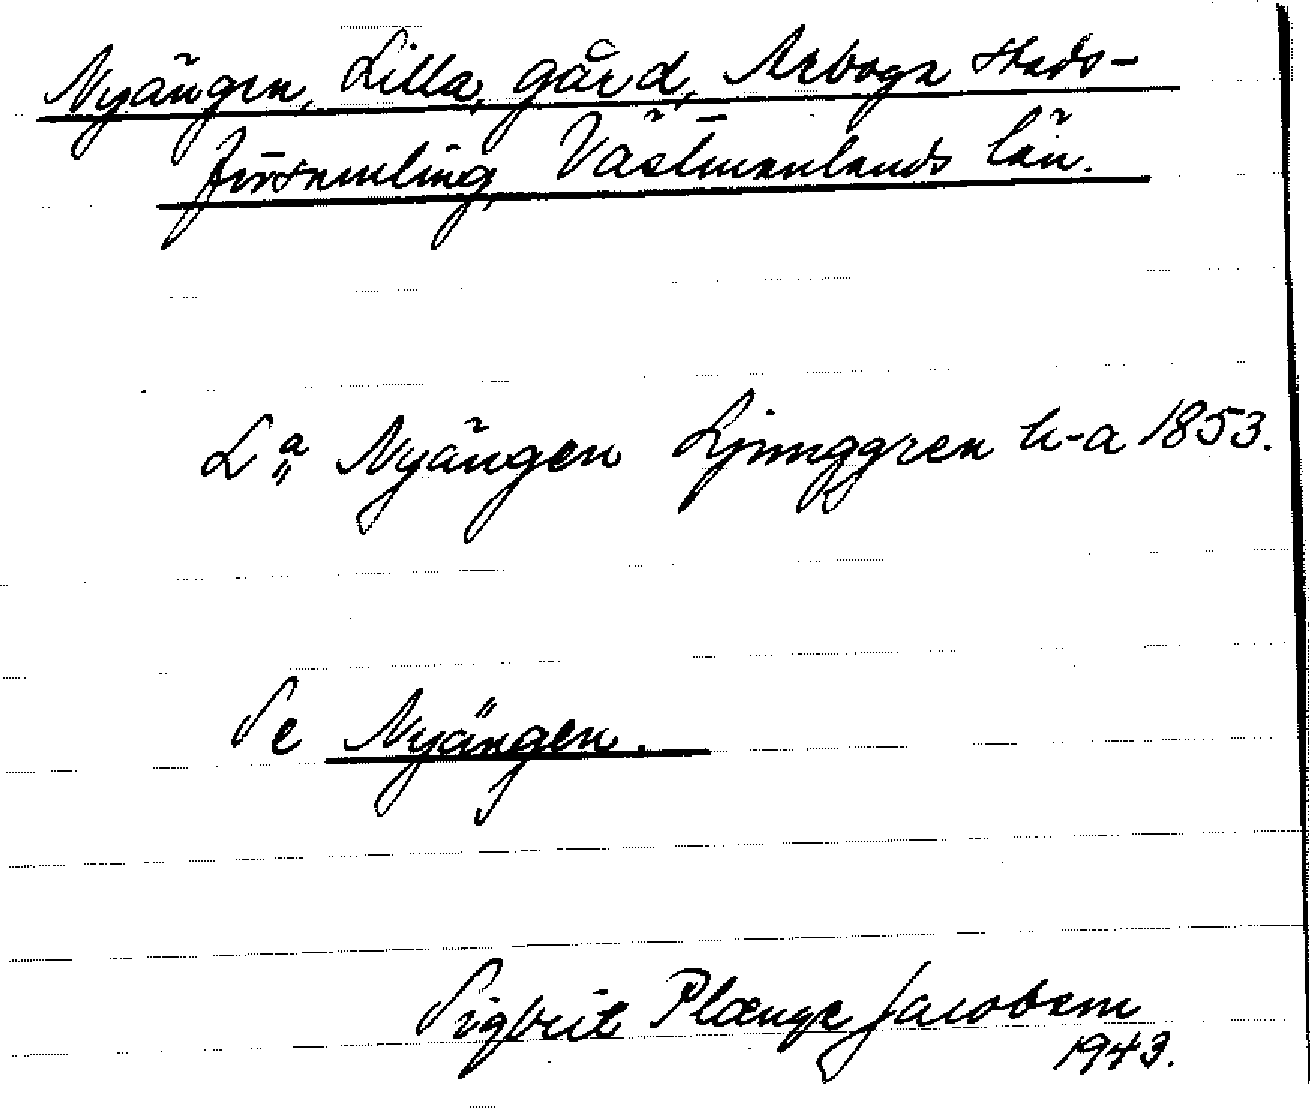 Nyängen, Lilla, gård, Arboga stads-
församling, Västmanlands län.
L:a Nyängen Ljunggren h-a 1853.
Se Nyängen.
Sigbrit Plænge Jacobson
1943.